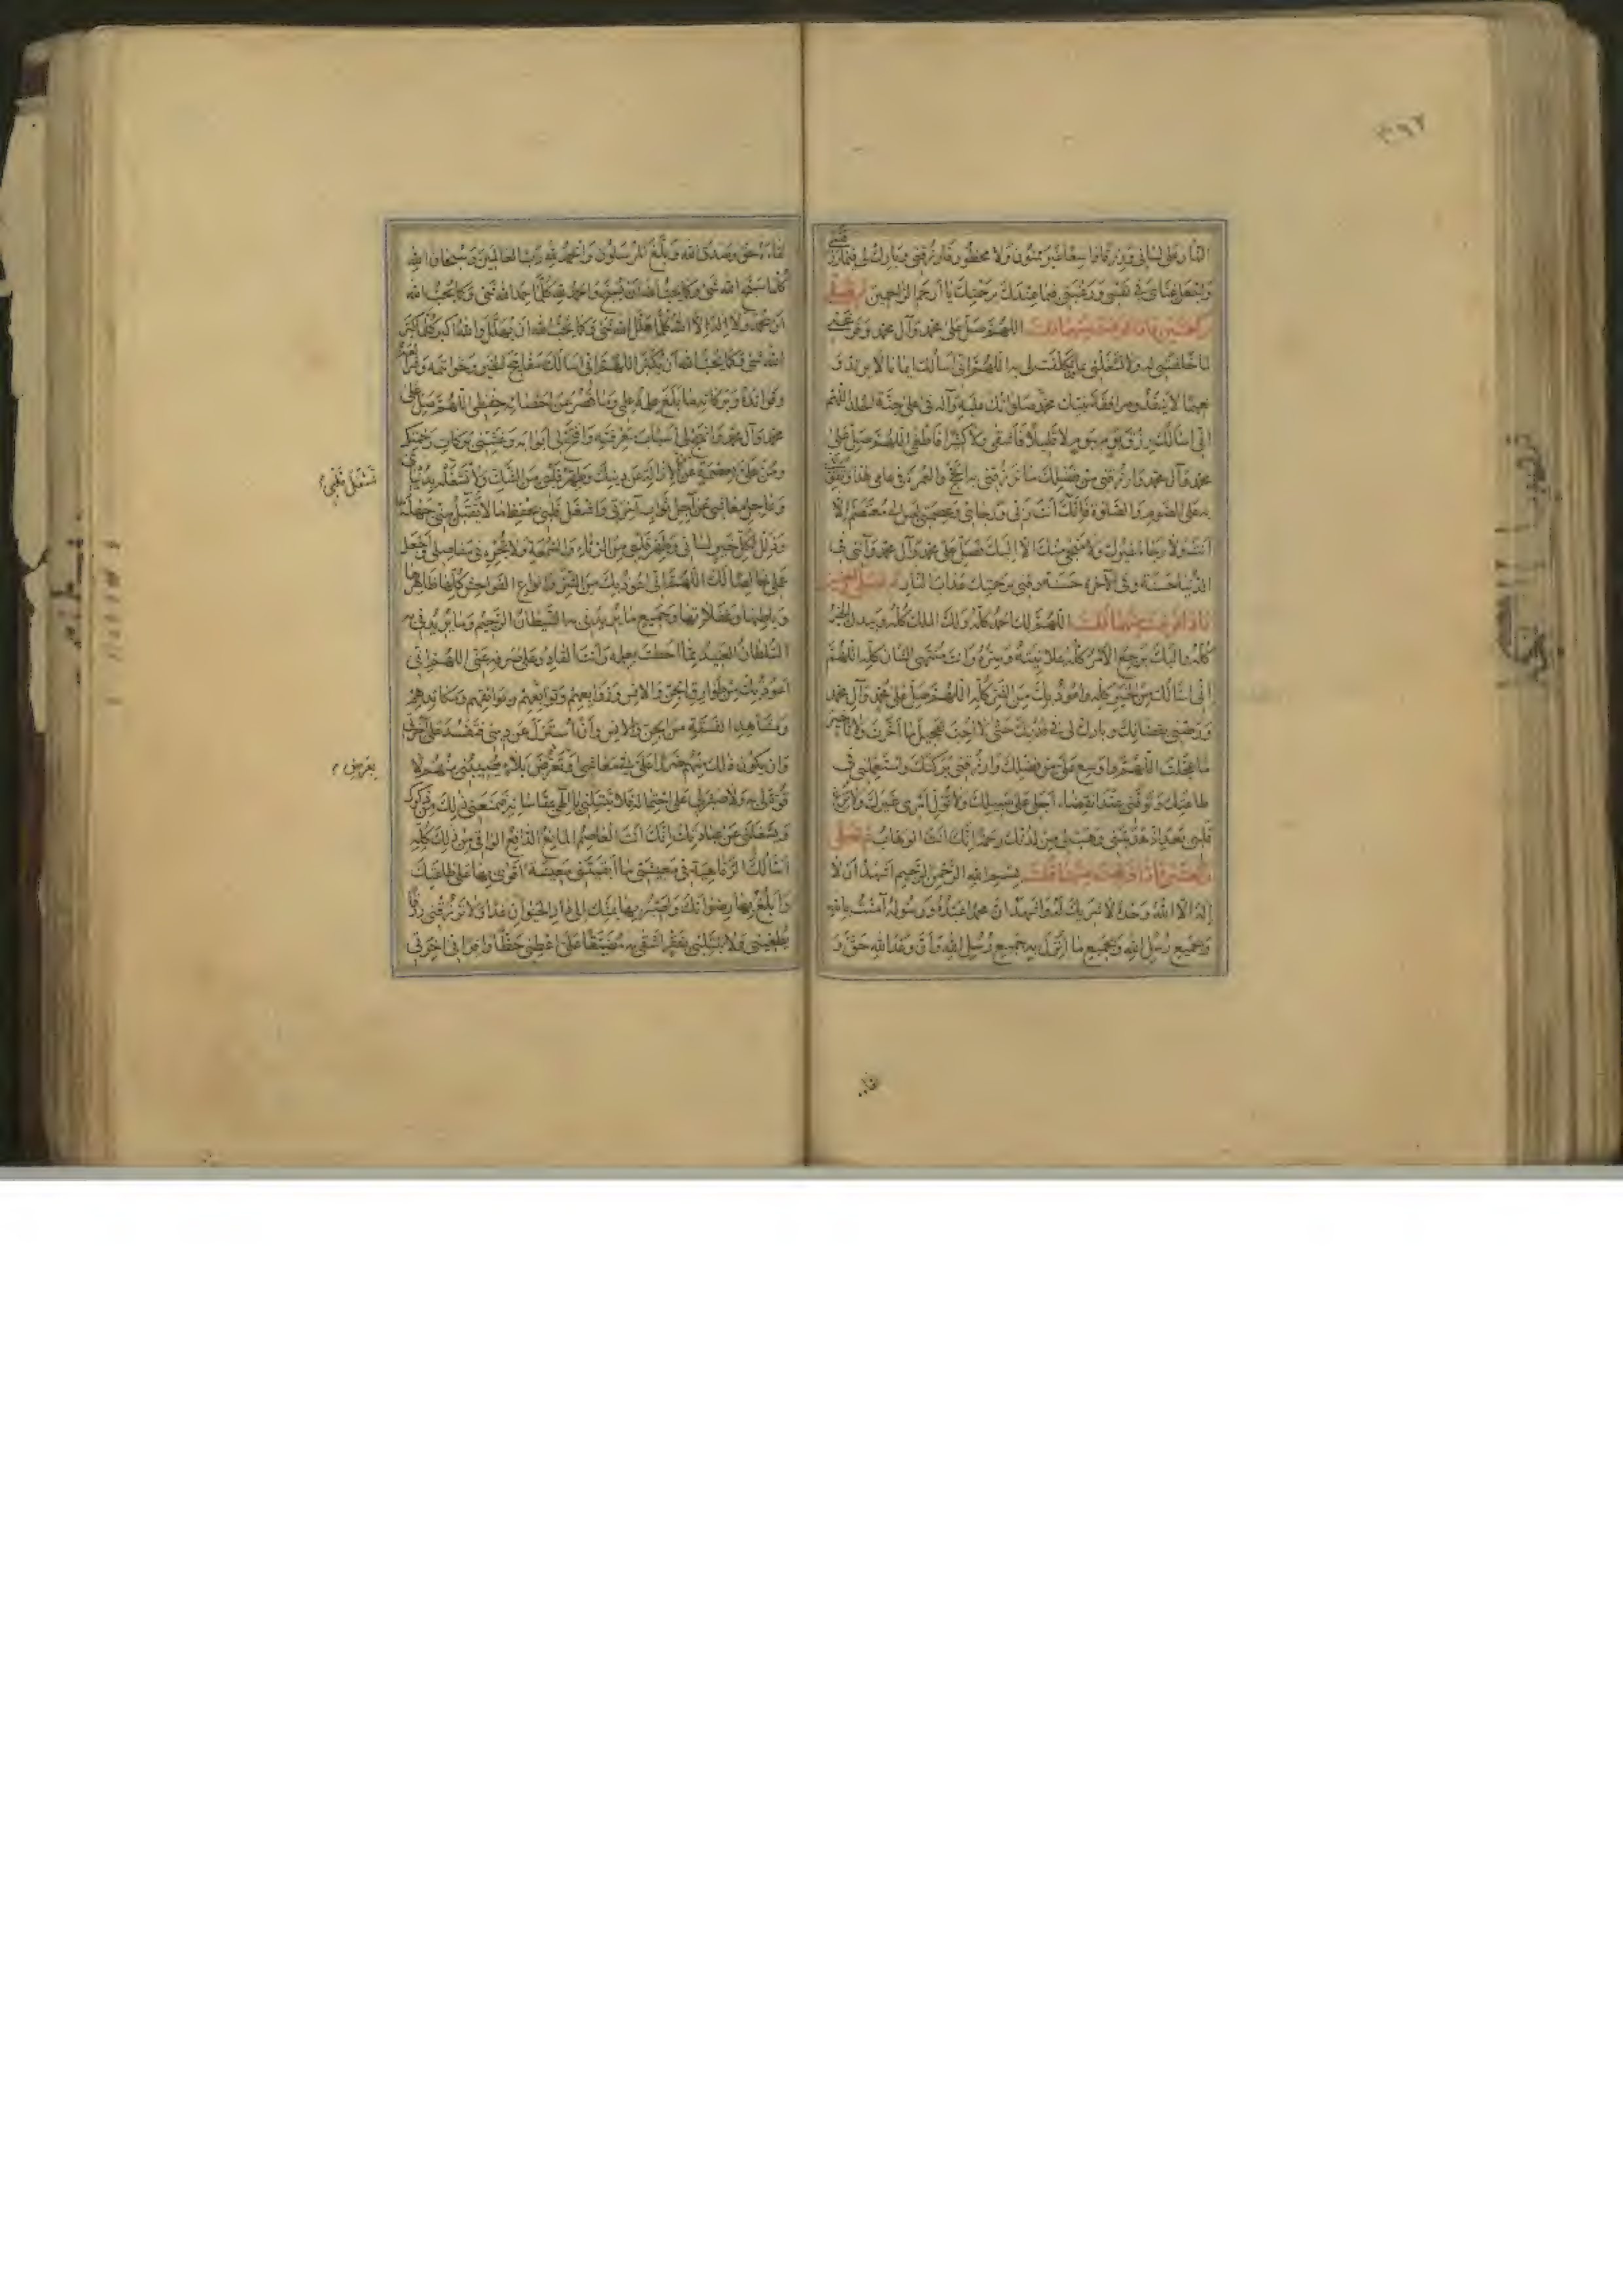 وَتَجْعَلَ غِنَايَ فِي نَفْسِي وَرَغْبَتِي فِيمَا عِنْدَكَ بِرَحْمَتِكَ يَا أَرْحَمَ الرَّاحِمِينَ
ركعتين فاذا فرغت منهما قلت اللهم صل على محمد وآل محمد وفرغني
لما خلقتني له ولا تشغلني بما تكفلت لي به اللهم اني اسألك ايمانا لا يرتد و
نعيما لا ينفد ومرافقة نبيك محمد صلواتك عليه وآله في اعلى جنة الخلد اللهم
اني اسألك رزق يوم بيوم لا قليلا فأشقى ولا كثيرا فأطغى اللهم صل على
محمد وآل محمد وارزقني من فضلك ما ترزقني به الحج والعمرة في عامي هذا
به على الصوم والصلوة فانك انت ربي ورجائي وعصمتي ليس لي معتصم الا
انت ولا رجاء غيرك ولا منجى منك الا اليك فصل على محمد وآل محمد وآتني في
الدنيا حسنة وفي الآخرة حسنة وقني برحمتك عذاب النار
فاذا فرغت منهما قلت اللهم لك الحمد كله ولك الملك كله وبيدك الخير
كله واليك يرجع الامر كله علانيته وسره وانت منتهى الشان كله اللهم
اني اسألك من الخير كله واعوذ بك من الشر كله اللهم صل على محمد وآل محمد
ورضني بقضائك وبارك لي في قدرك حتى لا احب تعجيل ما اخرت ولا تأخير
ما عجلت اللهم واوسع علي من فضلك وارزقني بركتك واستعملني في
طاعتك وتوفني عند انقضاء اجلي على سبيلك ولا تول امري غيرك ولا تزغ
قلبي بعد اذ هديتني وهب لي من لدنك رحمة انك انت الوهاب ثم تصلي
ركعتين فاذا فرغت منهما قلت بسم الله الرحمن الرحيم اشهد ان لا
إله الا الله وحده لا شريك له واشهد ان محمدا عبده ورسوله آمنت بالله
وبجميع رسل الله وبجميع ما انزل به جميع رسل الله وأن وعد الله حق و
لقاءه حق وصدق الله وبلغ المرسلون والحمد لله رب العالمين وسبحان الله
كلما سبح الله شئ وكما يحب الله ان يسبح والحمد لله كلما حمد الله شئ وكما يحب الله
ان يحمد ولا إله إلا الله كلما هلل الله شئ وكما يحب الله ان يهلل والله اكبر كلما كبر
الله شئ وكما يحب الله أن يكبر اللهم اني اسألك مفاتيح الخير وخواتمه
وفوائده وبركاته مما بلغ علمه علمي وما قصر عن احصائه حفظي اللهم صل على
محمد وآل محمد وانهج لي اسباب معرفته وافتح لي ابوابه وغشني بركات رحمتك
ومن علي بعصمة عن الازالة عن دينك وطهر قلبي من الشك ولا تشغله بدنياي
وعاجل معاشي عن آجل ثواب آخرتي واشغل قلبي بحفظ ما لا تقبل مني جهله
وذلل لكل خير لساني وطهر قلبي من الرياء والسمعة ولا تجره في مفاصلي واجعل
عملي خالصا لك اللهم اني اعوذ بك من الشر وانواع الفواحش كلها ظاهرها
وباطنها وغفلاتها وجميع ما يريدني به الشيطان الرجيم وما يريدني به
السلطان العنيد مما احطت بعلمه وأنت القادر على صرفه عني اللهم اني
اعوذ بك من طوارق الجن والانس وزوابعهم وتوابعهم وبوائقهم ومكايدهم
ومشاهد الفسقة من الجن والانس وأن أستزل عن ديني فتفسد علي آخرتي
وان يكون ذلك منهم ضررا علي في معاشي او تعرض بلاء يصيبني منهم لا
قوة لي به ولا صبر لي على احتماله فلا تبتلني يا الهي بمقاساته فيمنعني ذلك من ذكرك
ويشغلني عن عبادتك انك انت العاصم المانع الدافع الواقي من ذلك كله
اسألك الرفاهية في معيشتي ما أبقيتني معيشة اقوى بها على طاعتك
وأبلغ بها رضوانك وأصير بها بمنك إلى دار الحيوان غدا ولا ترزقني رزقا
يطغيني ولا تبتلني بفقر اشقى به مضيقا علي اعطني حظا وافرا في آخرتي